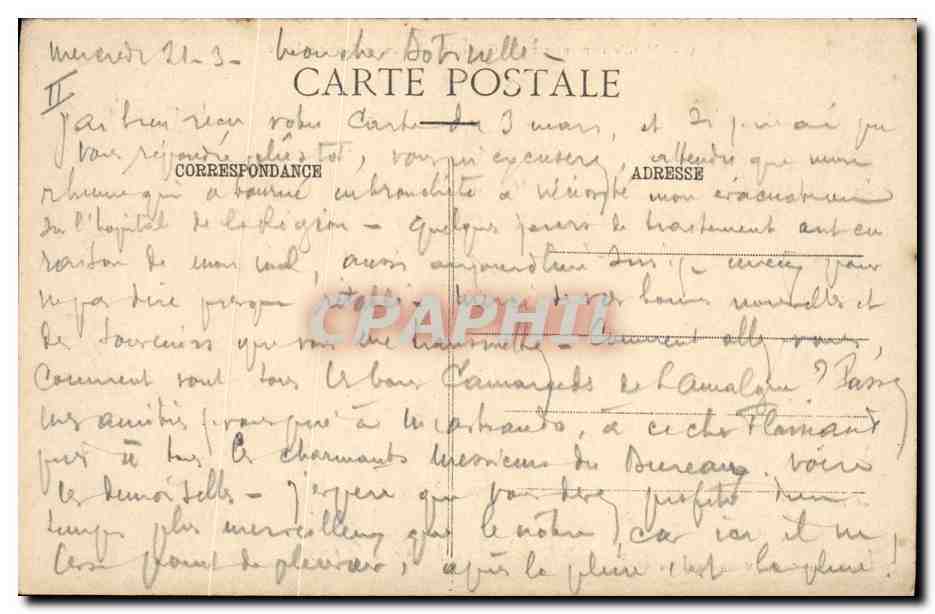 Mercredi 21-3- Mon cher
CARTE POSTALE
II
J'ai bien reçu votre carte du 3 mars, et si je n'ai pu
vous répondre plus tôt, vous m'excuserez, attendu que mon
CORRESPONDANCE
ADRESSE
rhume qui a tourné en bronchite a nécessité mon évacuation
sur l'hôpital de la Région - quelques jours de traitement ont eu
raison de mon mal, aussi aujourd'hui suis-je mieux pour
ne pas dire presque rétabli - Merci de vos bonnes nouvelles et
CPAPHIL
des souvenirs que vous me transmettez - Comment allez vous,
Comment vont tous les bons Camarades de l'Amalgame ? Passez
mes amitiés jusque à à ce cher
puis à tous les charmants Messieurs du Bureau, voire
les demoiselles - j'espère que vous devez profiter d'un
temps plus merveilleux que le nôtre car ici il ne
cesse point de pleuvoir, après la pluie c'est la pluie !